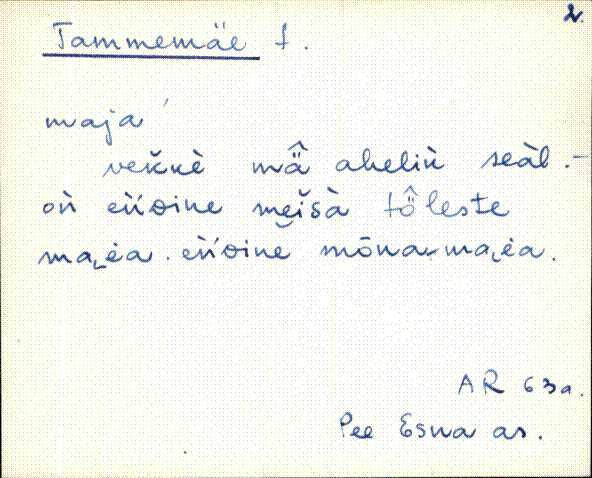 2.
Tammemäe t.
maja
veikkè mä̂ aheliǹ seàl. –
oǹ eǹ'oine mei̮šà tö̂leste
ma˛ėa. eǹ'oine mōna-ma˛ėa.
AR 63a.
Pee Esna as.